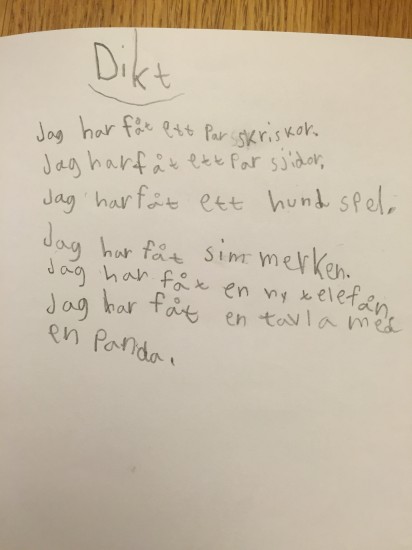 Dikt
Jag har fåt ett par skriskor.
Jag har fåt ett par sjidor.
Jag har fåt ett hund spel.
Jag har fåt sim merken.
Jag har fåt en ny telefån
Jag har fåt en tavla med
en Panda.